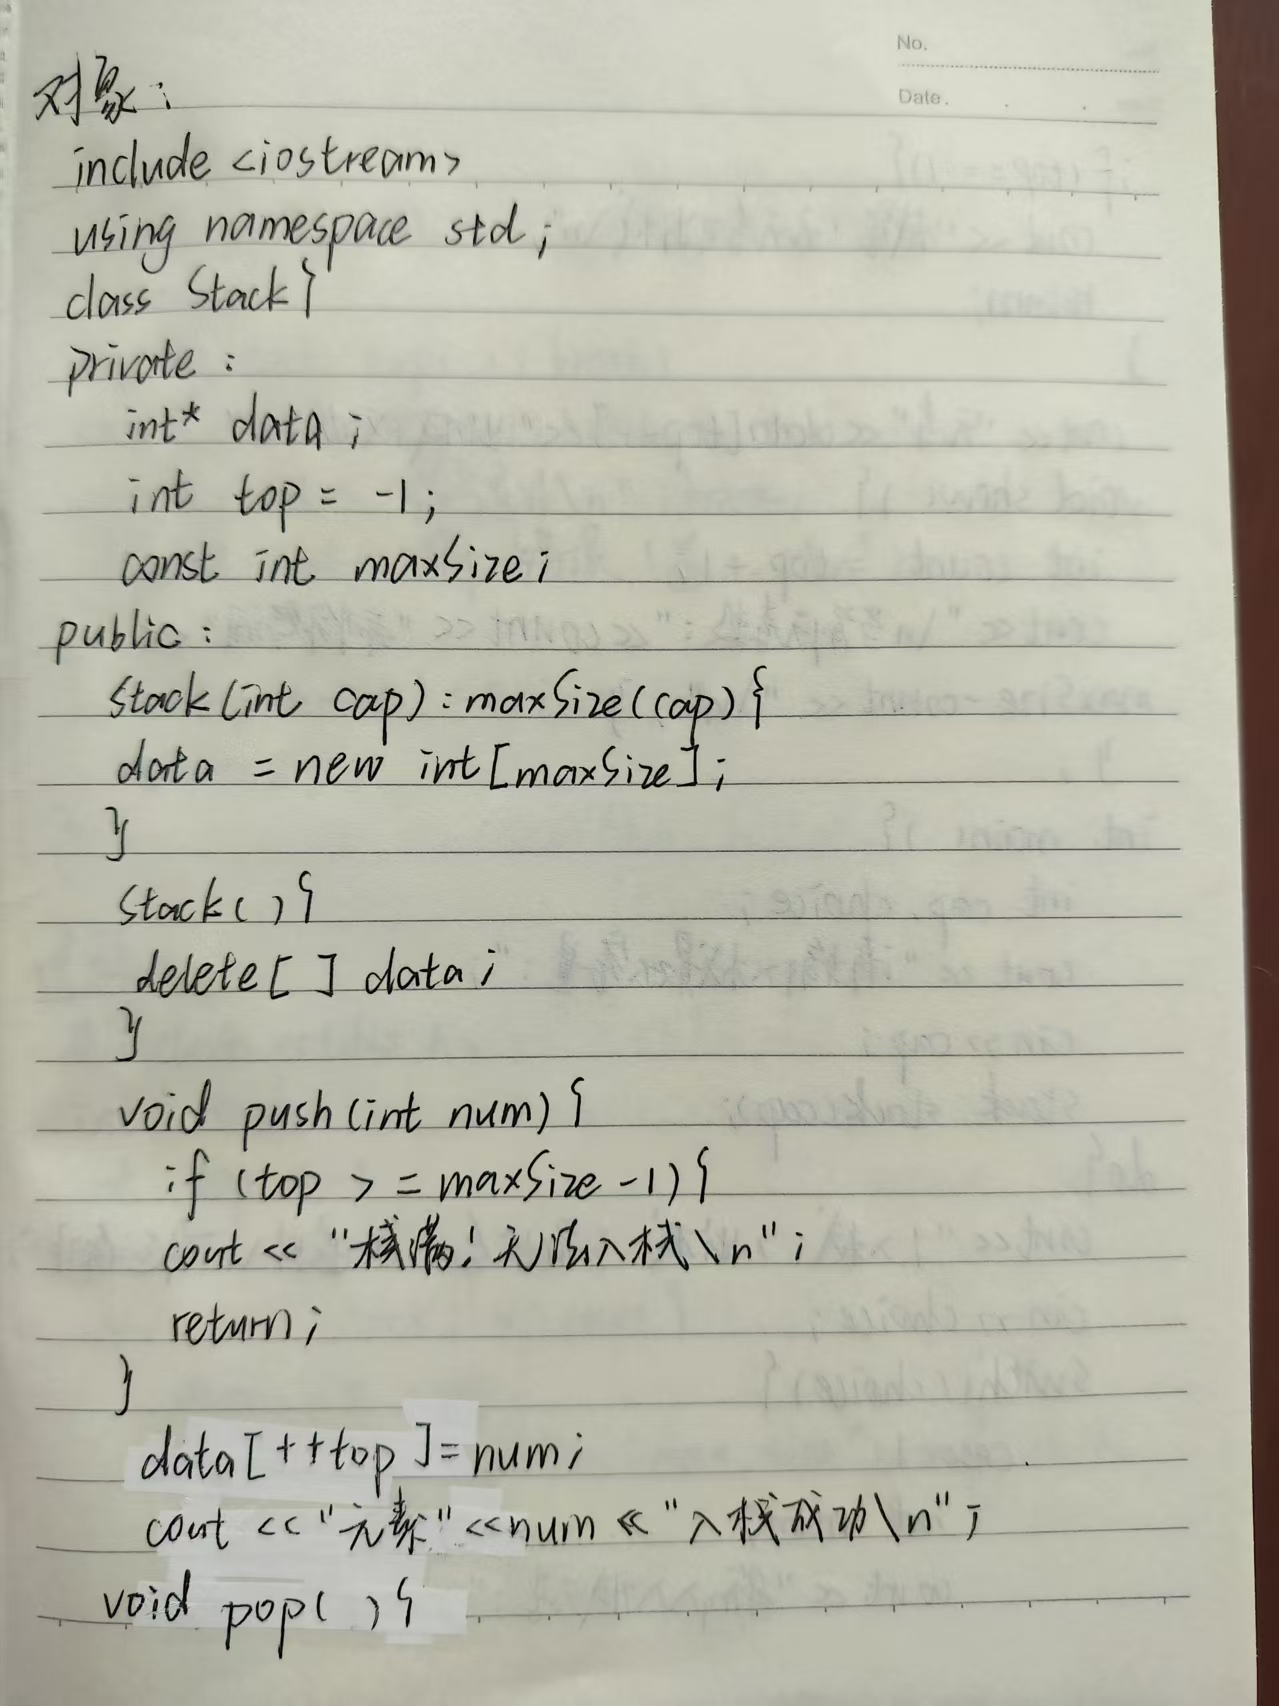 No.
Date.
对象：
include <iostream>
using namespace std;
class Stack{
private:
int* data;
int top = -1;
const int maxSize;
public:
Stack(int cap):maxSize(cap){
data = new int[maxSize];
}
Stack(){
delete[ ] data;
}
void push(int num){
if (top >= maxSize-1){
cout << "栈满！无法入栈\n";
return;
}
data[++top]=num;
cout <<"元素"<<num<<"入栈成功\n";
void pop( ){